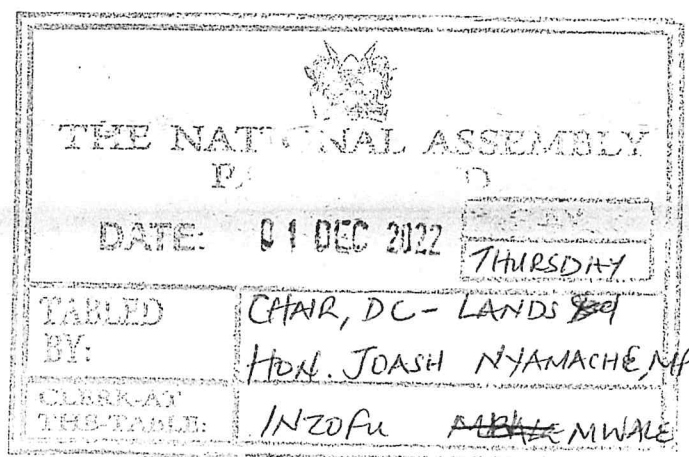 THE NATIONAL ASSEMBLY
DATE: 01 DEC 2022
DAY
THURSDAY
TABLED
BY:
CHAIR, DC - LANDS
HON. JOASH NYAMACHE, MP
CLERK-AT
THE-TABLE:
INZOFU MWALE